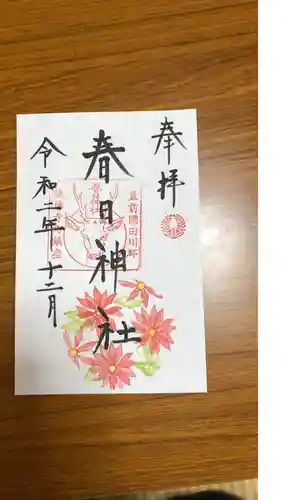 奉拝
春日神社
豊前國田川郡
春日神社
令和二年十二月